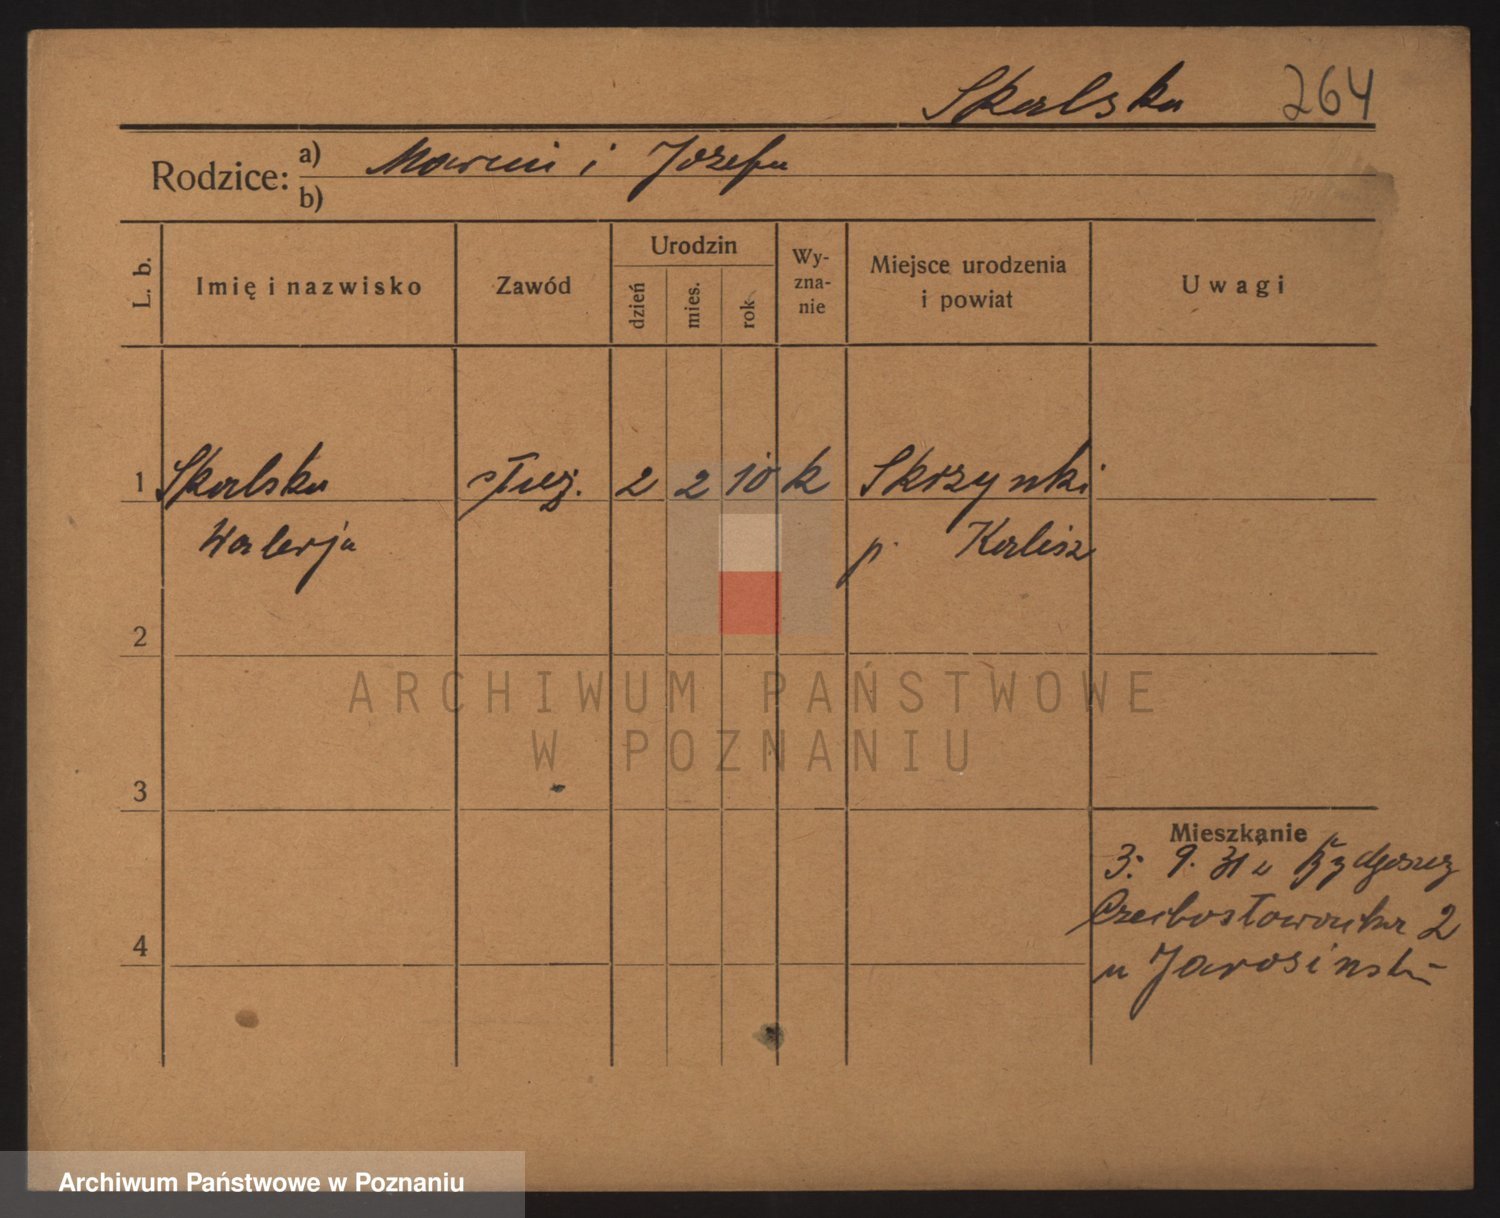 Skalska 264
Rodzice: a) Marcin i Józefa
b)
L. b. Imię i nazwisko Zawód Urodzin dzień mies. rok Wyznanie Miejsce urodzenia i powiat Uwagi
1 Skalska służ. 2 2 10 k Skrzynki
Walerja p. Kalisz
2
ARCHIWUM PAŃSTWOWE
W POZNANIU
3
Mieszkanie
3. 9. 31 z Bydgoszcz
Czechosłowacka 2
4
u Jarosinski
Archiwum Państwowe w Poznaniu